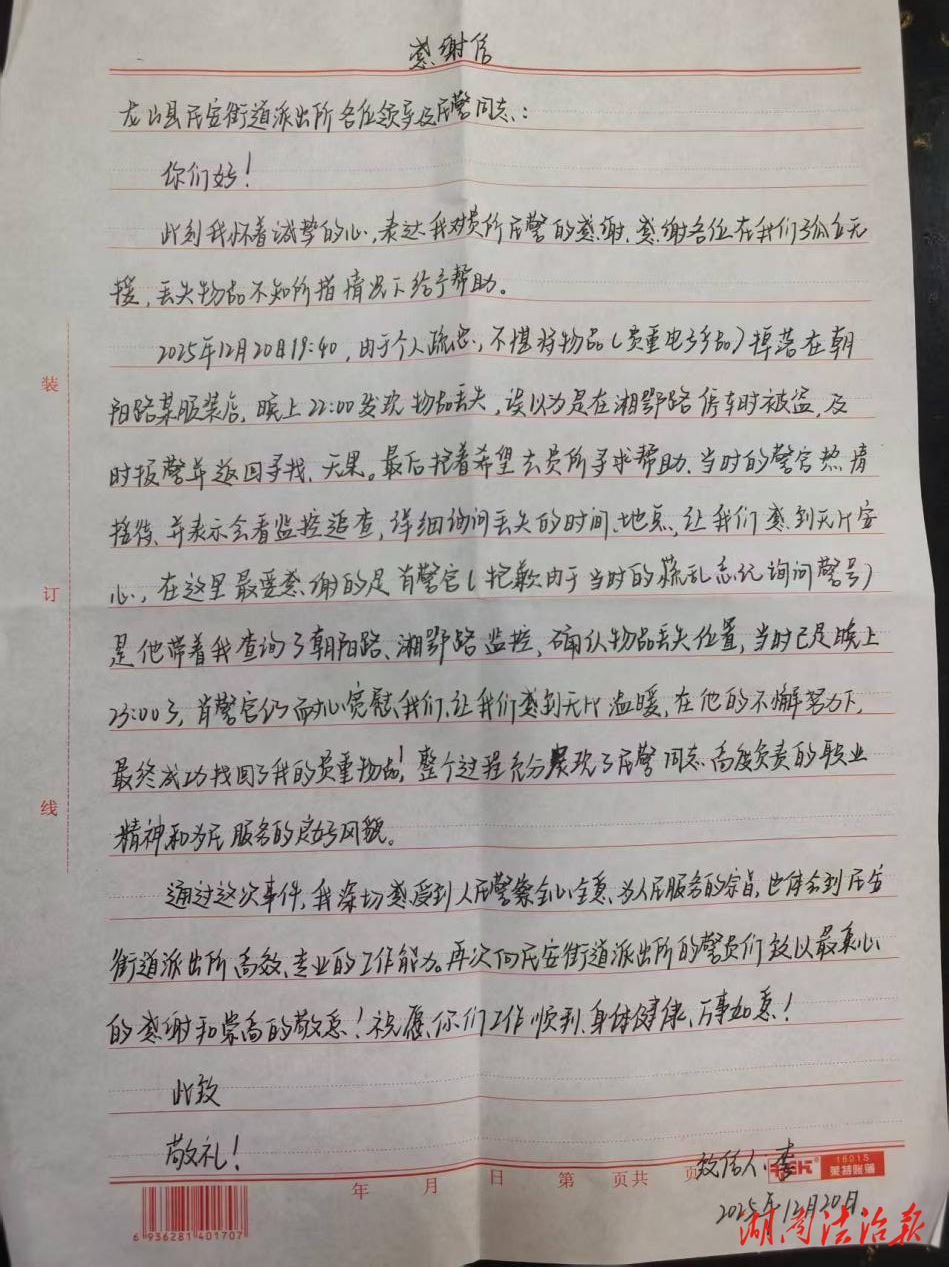 感谢信
龙山县民安街道派出所各位领导及民警同志：
你们好！
此刻我怀着诚挚的心，表达我对贵所民警的感谢，感谢各位在我们孤立无
援，丢失物品不知所措情况下给予帮助。
2025年12月20日19:40，由于个人疏忽，不堪将物品（贵重电子产品）掉落在朝
阳路某服装店，晚上22:00发现物品丢失，误以为是在湘鄂路停车时被盗，及
时报警并返回寻找，无果。最后抱着希望去贵所寻求帮助，当时的警官热情
接待、并表示会看监控追查，详细询问丢失的时间、地点，让我们感到无比安
心，在这里最要感谢的是肖警官（抱歉由于当时的慌乱忘记询问警号）
是他带着我查询了朝阳路、湘鄂路监控，确认物品丢失位置，当时已是晚上
23:00了，肖警官仍耐心宽慰我们，让我们感到无比温暖，在他的不懈努力下，
最终成功找回了我的贵重物品！整个过程充分展现了民警同志高度负责的职业
精神和为民服务的良好风貌。
通过这次事件，我深切感受到人民警察全心全意、为人民服务的宗旨，也体会到民安
街道派出所高效、专业的工作能力。再次向民安街道派出所的警员们致以最真心
的感谢和崇高的敬意！祝愿你们工作顺利、身体健康、万事如意！
此致
敬礼！
致信人：李
2025年12月20日
装
订
线
年 月 日 第 页共 页
1601S
莱特账簿
6 936281 401707
湖南法治报